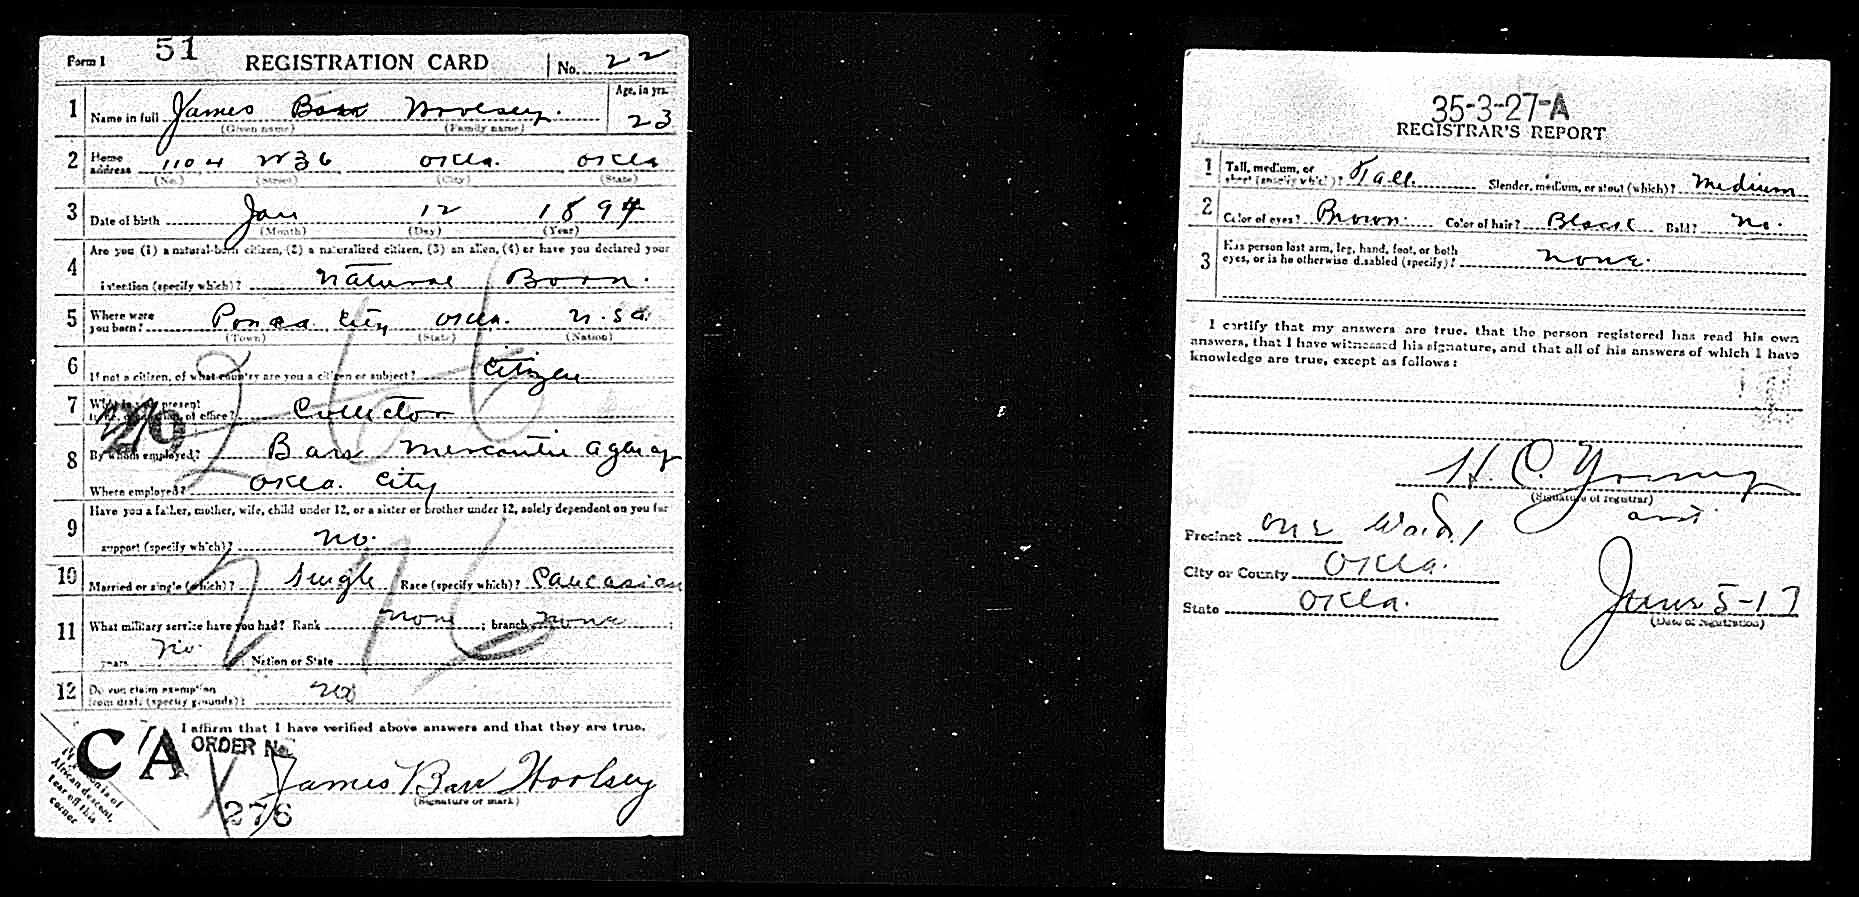 Form 1 51 REGISTRATION CARD No. 22
1 Name in full James Barr Woolsey. Age, in yrs. 23
(Given name) (Family name)
2 Home address 1104 W 36 Okla. Okla
(No.) (Street) (City) (State)
3 Date of birth Jan 12 1894
(Month) (Day) (Year)
Are you (1) a natural-born citizen, (2) a naturalized citizen, (3) an alien, (4) or have you declared your
4 intention (specify which)? Natural Born.
5 Where were you born? Ponca City Okla. U.S.A.
(Town) (State) (Nation)
6 If not a citizen, of what country are you a citizen or subject? Citizen
7 What is your present trade, occupation, or office? Collector
8 By whom employed? Bars Mercantie Agency
Where employed? Okla. City
9 Have you a father, mother, wife, child under 12, or a sister or brother under 12, solely dependent on you for
support (specify which)? No.
10 Married or single (which)? Single Race (specify which)? Caucasian
11 What military service have you had? Rank None ; branch None ;
years No. Nation or State
12 Do you claim exemption from draft (specify grounds)? No
I affirm that I have verified above answers and that they are true.
CA ORDER No.
James Barr Woolsey
(Signature or mark)
276
If person is of African descent, tear off this corner
35-3-27-A
REGISTRAR'S REPORT
1 Tall, medium, or short (specify which)? Tall Slender, medium, or stout (which)? Medium
2 Color of eyes? Brown. Color of hair? Black Bald? No.
3 Has person lost arm, leg, hand, foot, or both eyes, or is he otherwise disabled (specify)? None.
I certify that my answers are true, that the person registered has read his own
answers, that I have witnessed his signature, and that all of his answers of which I have
knowledge are true, except as follows:
H. C. Young
(Signature of registrar)
Precinct One Ward 1
City or County Okla.
State Okla.
June 5-17
(Date of registration)